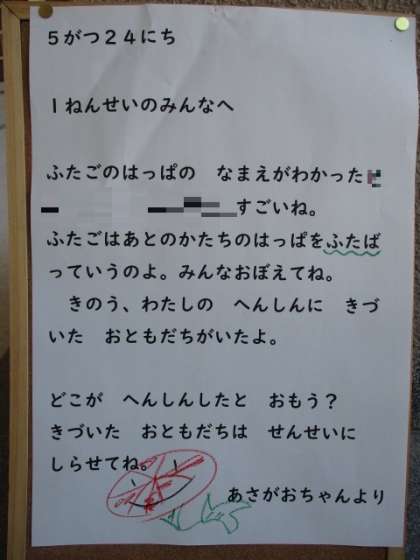 ５がつ２４にち
１ねんせいのみんなへ
ふたごのはっぱの　なまえがわかった
すごいね。
ふたごはあとのかたちのはっぱをふたば
っていうのよ。みんなおぼえてね。
きのう、わたしの　へんしんに　きづ
いた　おともだちがいたよ。
どこが　へんしんしたと　おもう？
きづいた　おともだちは　せんせいに
しらせてね。
あさがおちゃんより